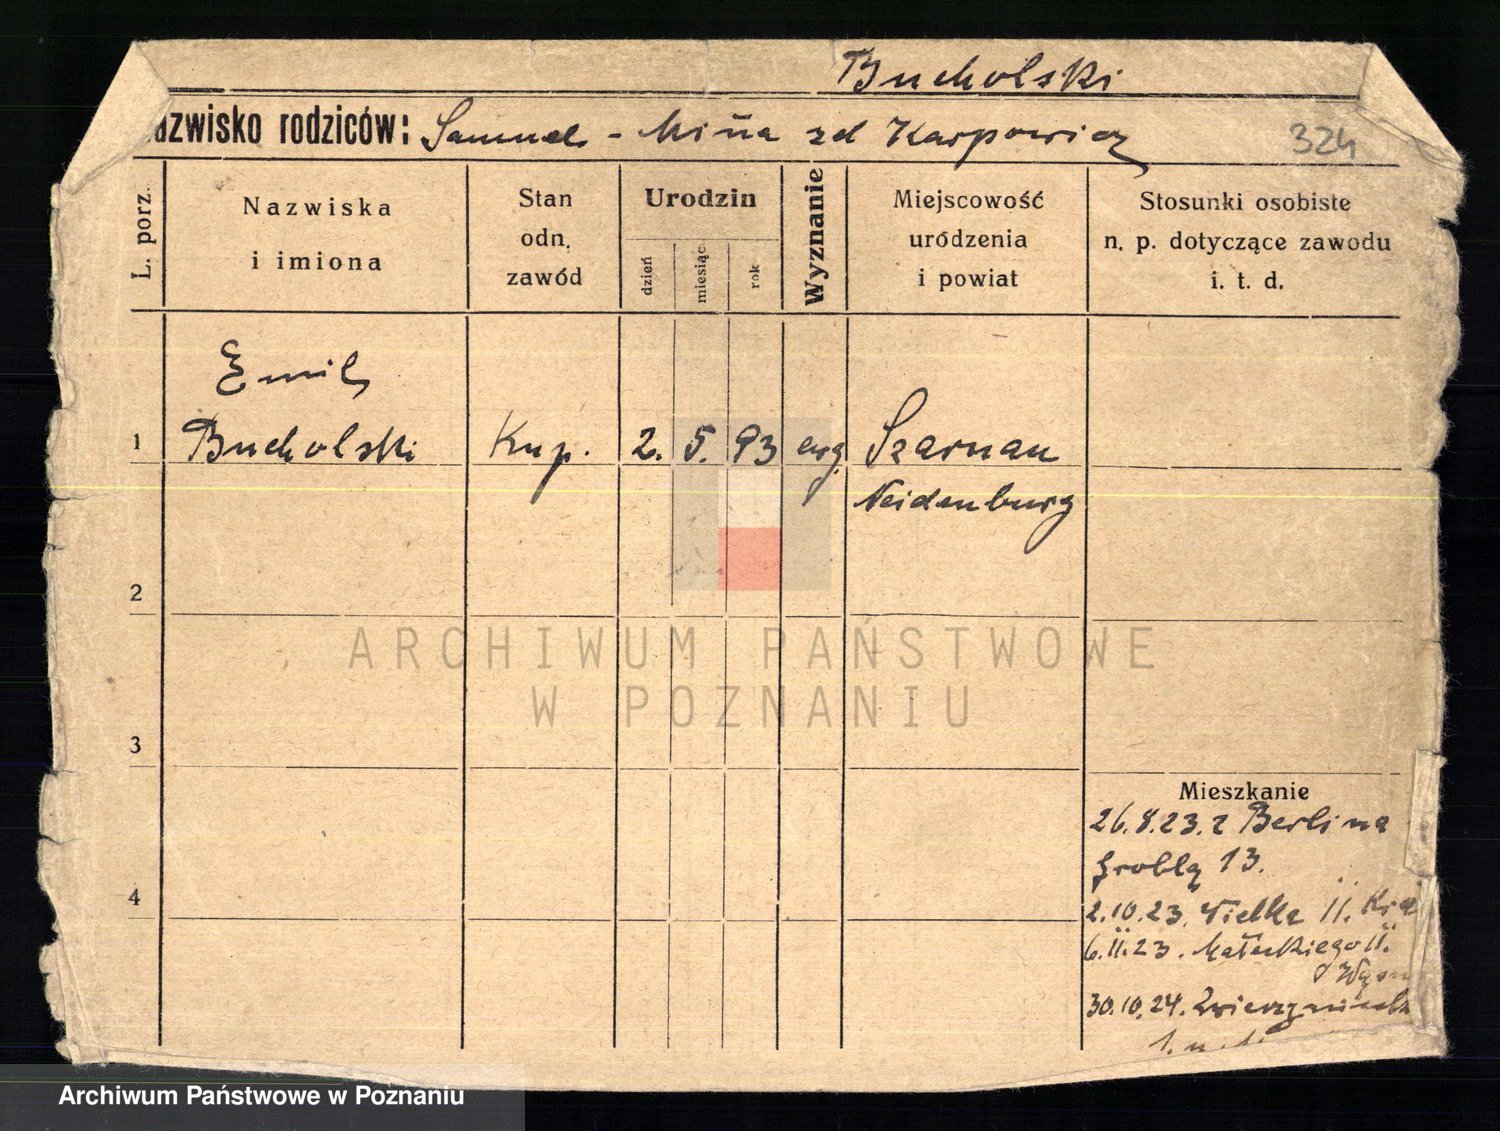 Bucholski
azwisko rodziców: Samuel - Mina zd Karpowicz
324
L. porz.
Nazwiska
i imiona
Stan
odn.
zawód
Urodzin
dzień
miesiąc
rok
Wyznanie
Miejscowość
uródzenia
i powiat
Stosunki osobiste
n. p. dotyczące zawodu
i. t. d.
Emil
1 Bucholski Kup. 2. 5. 93 ewg. Szarnau
Neidenburg
2
ARCHIWUM PAŃSTWOWE
W POZNANIU
3
Mieszkanie
26.8.23. z Berlina
Groblą 13.
4
2.10.23. Wielka 11.
6.11.23. Małeckiego 11.
30.10.24.
Archiwum Państwowe w Poznaniu